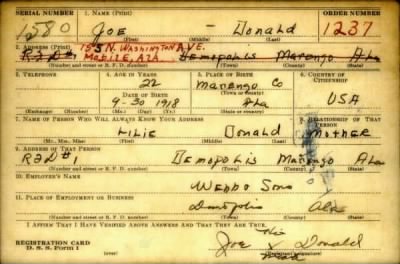 SERIAL NUMBER 1. NAME (Print) ORDER NUMBER
1580 JOE — Donald 1237
(First) (Middle) (Last)
2. ADDRESS (Print) 153 N. WASHINGTON AVE.
R3D#1 MOBILE, ALA DEMOPOLIS MARENGO ALA
(Number and street or R. F. D. number) (Town) (County) (State)
3. TELEPHONE 4. AGE IN YEARS 5. PLACE OF BIRTH 6. COUNTRY OF CITIZENSHIP
22 MARENGO CO
DATE OF BIRTH (Town or county)
9-30 1918 Ala USA
(Exchange) (Number) (Mo.) (Day) (Yr.) (State or country)
7. NAME OF PERSON WHO WILL ALWAYS KNOW YOUR ADDRESS 8. RELATIONSHIP OF THAT PERSON
LILIE Donald MOTHER
(Mr., Mrs., Miss) (First) (Middle) (Last)
9. ADDRESS OF THAT PERSON
R3D#1 DEMOPOLIS MARENGO Ala
(Number and street or R. F. D. number) (Town) (County) (State)
10. EMPLOYER'S NAME
Sons
11. PLACE OF EMPLOYMENT OR BUSINESS
Demopolis Ala
(Number and street or R. F. D. number) (Town) (County) (State)
I AFFIRM THAT I HAVE VERIFIED ABOVE ANSWERS AND THAT THEY ARE TRUE.
REGISTRATION CARD his
D. S. S. Form 1 Joe x Donald
(over) mark (Registrant's signature)